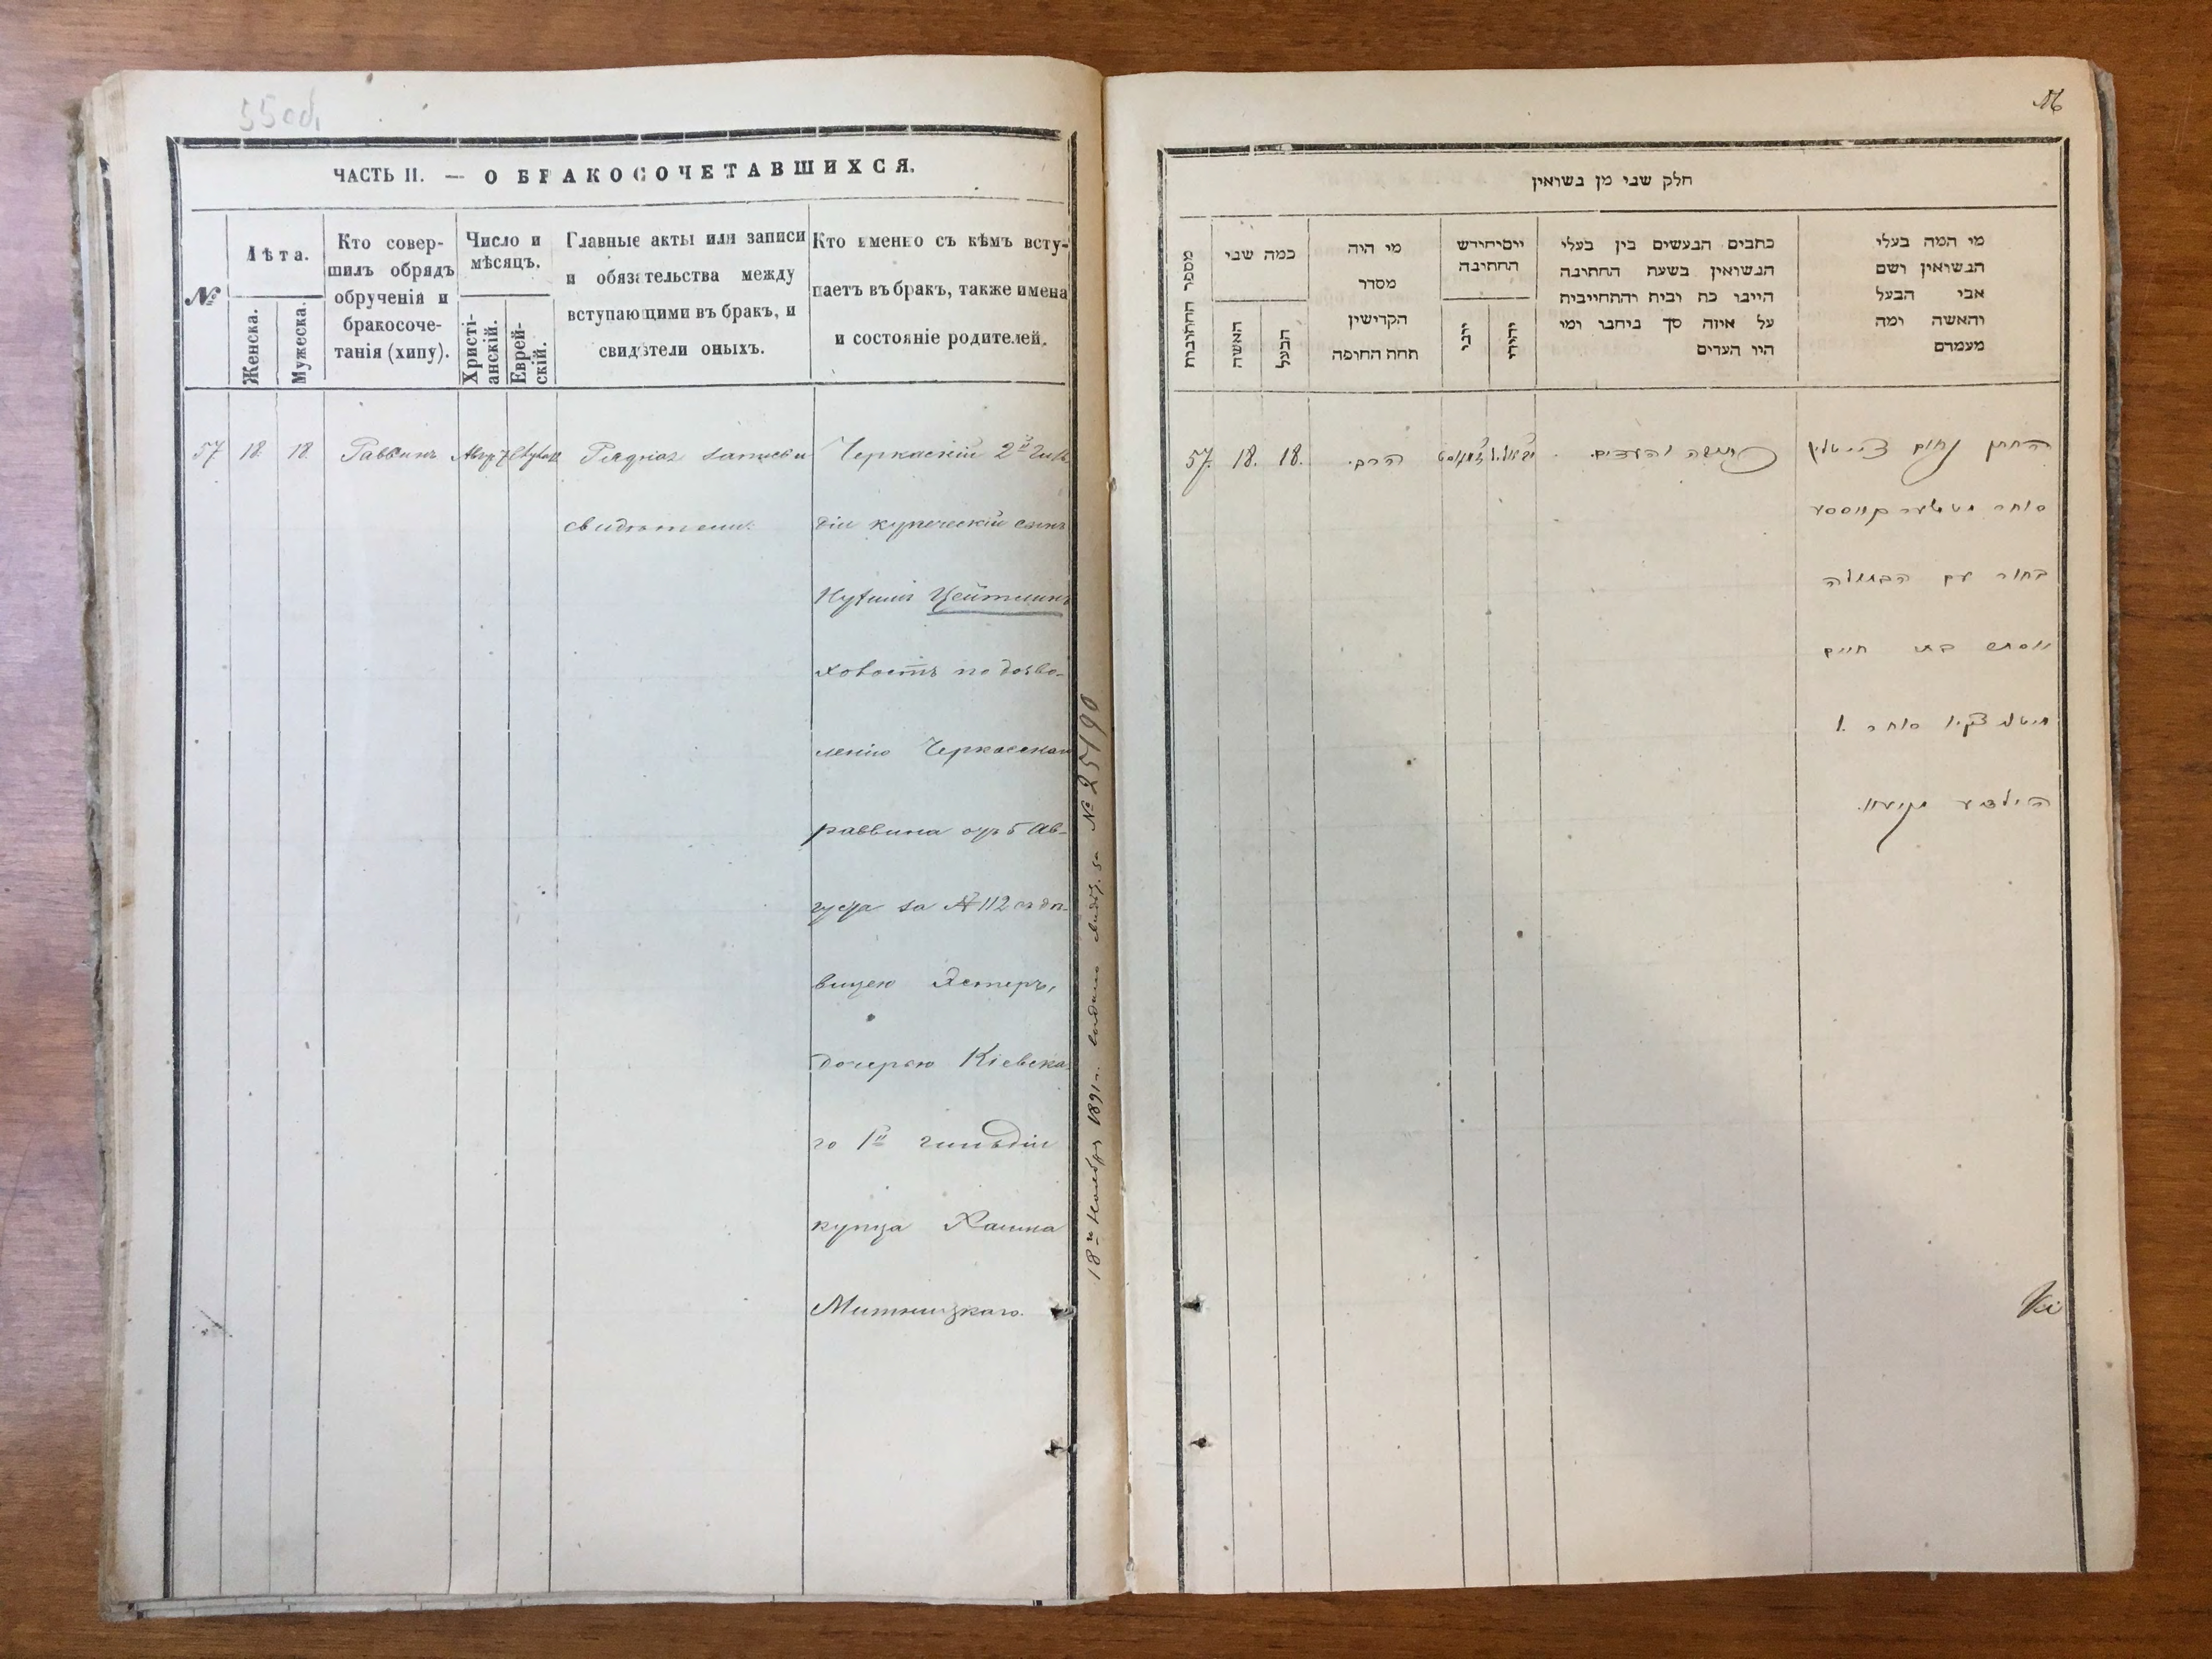 55 об.
ЧАСТЬ II. — О БРАКОСОЧЕТАВШИХСЯ.
№
Лѣта.
Женска.
Мужеска.
Кто совер-
шилъ обрядъ
обрученія и
бракосоче-
танія (хипу).
Число и
мѣсяцъ.
Христі-
анскій.
Еврей-
скій.
Главные акты или записи
и обязательства между
вступающими въ бракъ, и
свидѣтели оныхъ.
Кто именно съ кѣмъ всту-
паетъ въ бракъ, также имена
и состояніе родителей.
57
18
18
Раввинъ
запись и
свидѣтели
Черкаскій 2й Гиль
діи купеческій сынъ
Цейтлинъ
холостъ по дозво-
ленію Черкасскаго
раввина отъ 5 Ав-
густа за № 112 съ дѣ-
вицею Эстеръ,
дочерью Кіевска
го 1й гильдіи
купца Хаима
Митницкаго.
18го Ноября 1891 г. выдано свидѣт. за № 25190
חלק שני מן נשואין
מספר החתונות
כמה שני
האשה
הבעל
מי היה
מסדר
הקדישין
תחת החופה
יום וחודש
החתונה
יוני
יהודי
כתבים הנעשים בין בעלי
הנשואין בשעת החתונה
היינו כת ובית והתחייבות
על איזה סך ניתנו ומי
היו העדים
מי המה בעלי
הנשואין ושם
אבי הבעל
והאשה ומה
מעמדם
57.
18.
18.
הרב.
והעדים.
החתן נחום צייטלין
סוחר
בחור עם הבתולה
בת חיים
סוחר 1